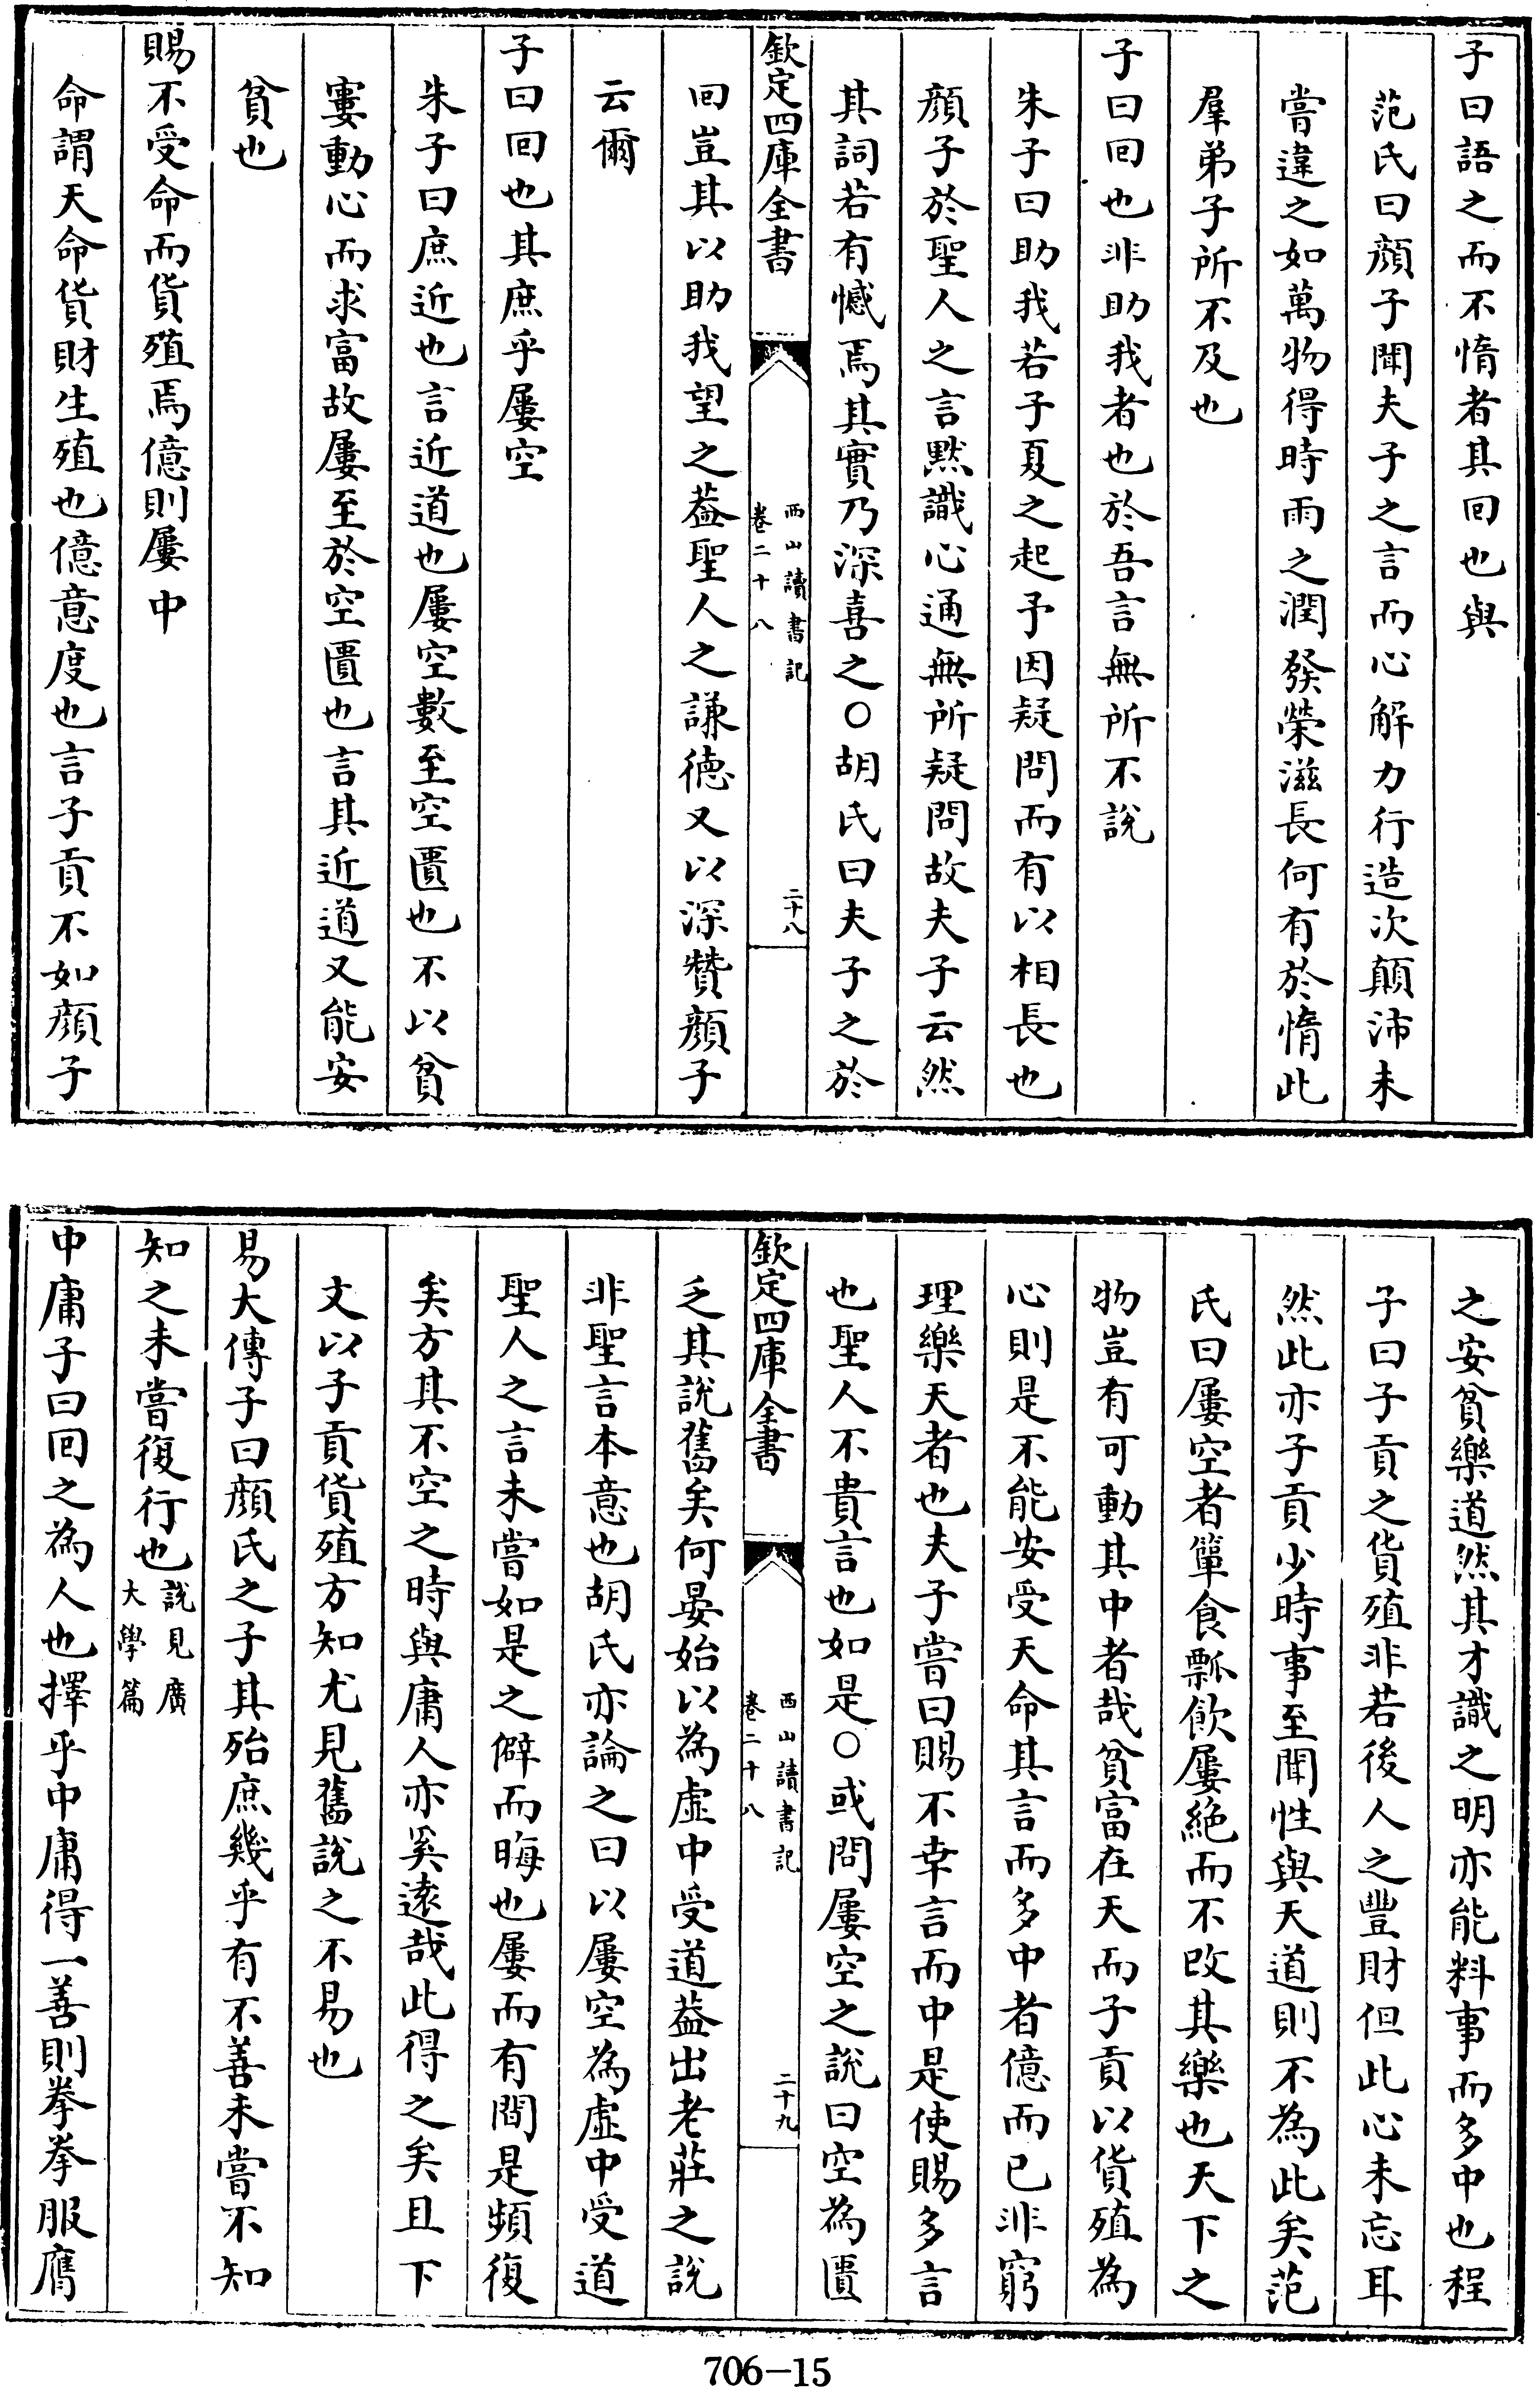 子曰語之而不惰者其回也與
范氏曰顔子聞夫子之言而心解力行造次顛沛未
嘗違之如萬物得時雨之潤發榮滋長何有於惰此
羣弟子所不及也
子曰回也非助我者也於吾言無所不說
朱子曰助我若子夏之起予因疑問而有以相長也
顔子於聖人之言黙識心通無所疑問故夫子云然
其詞若有憾焉其實乃深喜之〇胡氏曰夫子之於
欽定四庫全書
西山讀書記
卷二十八
二十八
回豈其以助我望之葢聖人之謙德又以深贊顔子
云爾
子曰回也其庶乎屢空
朱子曰庶近也言近道也屢空數至空匱也不以貧
寠動心而求富故屢至於空匱也言其近道又能安
貧也
賜不受命而貨殖焉億則屢中
命謂天命貨殖貨財生殖也億意度也言子貢不如顔子
之安貧樂道然其才識之明亦能料事而多中也程
子曰子貢之貨殖非若後人之豐財但此心未忘耳
然此亦子貢少時事至聞性與天道則不為此矣范
氏曰屢空者簞食瓢飲屢絶而不改其樂也天下之
物豈有可動其中者哉貧富在天而子貢以貨殖為
心則是不能安受天命其言而多中者億而已非窮
理樂天者也夫子嘗曰賜不幸言而中是使賜多言
也聖人不貴言也如是〇或問屢空之說曰空為匱
欽定四庫全書
西山讀書記
卷二十八
二十九
乏其說舊矣何晏始以為虛中受道葢出老莊之說
非聖言本意也胡氏亦論之曰以屢空為虛中受道
聖人之言未嘗如是之僻而晦也屢而有間是頻復
矣方其不空之時與庸人亦奚遠哉此得之矣且下
文以子貢貨殖方知尤見舊說之不易也
易大傳子曰顔氏之子其殆庶幾乎有不善未嘗不知
知之未嘗復行也說見廣大學篇
中庸子曰回之為人也擇乎中庸得一善則拳拳服膺
706-15